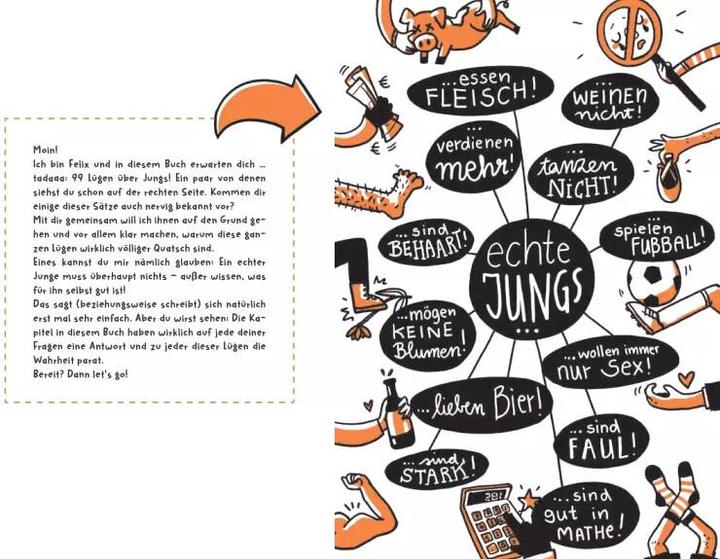 Moin!
Ich bin Felix und in diesem Buch erwarten dich …
tadaaa: 99 Lügen über Jungs! Ein paar von denen
siehst du schon auf der rechten Seite. Kommen dir
einige dieser Sätze auch nervig bekannt vor?
Mit dir gemeinsam will ich ihnen auf den Grund ge-
hen und vor allem klar machen, warum diese gan-
zen Lügen wirklich völliger Quatsch sind.
Eines kannst du mir nämlich glauben: Ein echter
Junge muss überhaupt nichts – außer wissen, was
für ihn selbst gut ist!
Das sagt (beziehungsweise schreibt) sich natürlich
erst mal sehr einfach. Aber du wirst sehen: Die Ka-
pitel in diesem Buch haben wirklich auf jede deiner
Fragen eine Antwort und zu jeder dieser Lügen die
Wahrheit parat.
Bereit? Dann let's go!
...essen
FLEISCH!
WEINEN
nicht!
...
verdienen
mehr!
...
tanzen
NICHT!
...sind
BEHAART!
echte
JUNGS
...
...
spielen
FUẞBALL!
...mögen
KEINE
Blumen!
...wollen immer
nur Sex!
...lieben Bier!
...sind
FAUL!
...sind
STARK!
...sind
gut in
MATHE!
€
€
281